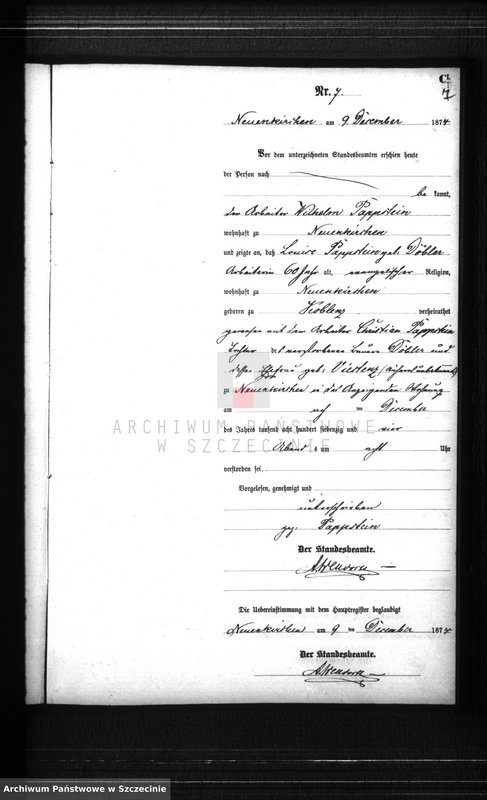 C.
7
Nr. 7.
Neuenkirchen am 9 December 1874
Vor dem unterzeichneten Standesbeamten erschien heute
der Person nach
be kannt,
der Arbeiter Wilhelm Pappstein
wohnhaft zu Neuenkirchen
und zeigte an, daß Louise Pappstein geb: Döbler
Arbeiterin 60 Jahr alt, evangelischer Religion,
wohnhaft zu Neuenkirchen
geboren zu Koblenz verheirathet
gewesen mit dem Arbeiter Christian Pappstein
Tochter des verstorbenen Döbler und
dessen Ehefrau geb: (Näheres unbekannt)
zu Neuenkirchen in des Anzeigenden Wohnung
am ten December
des Jahres tausend acht hundert siebenzig und vier
Abend s um acht Uhr
verstorben sei.
Vorgelesen, genehmigt und
unterschrieben
gez. Pappstein
Der Standesbeamte.
Die Uebereinstimmung mit dem Hauptregister beglaubigt
Neuenkirchen am 9 ten December 1874
Der Standesbeamte.
ARCHIWUM PAŃSTWOWE
W SZCZECINIE
Archiwum Państwowe w Szczecinie